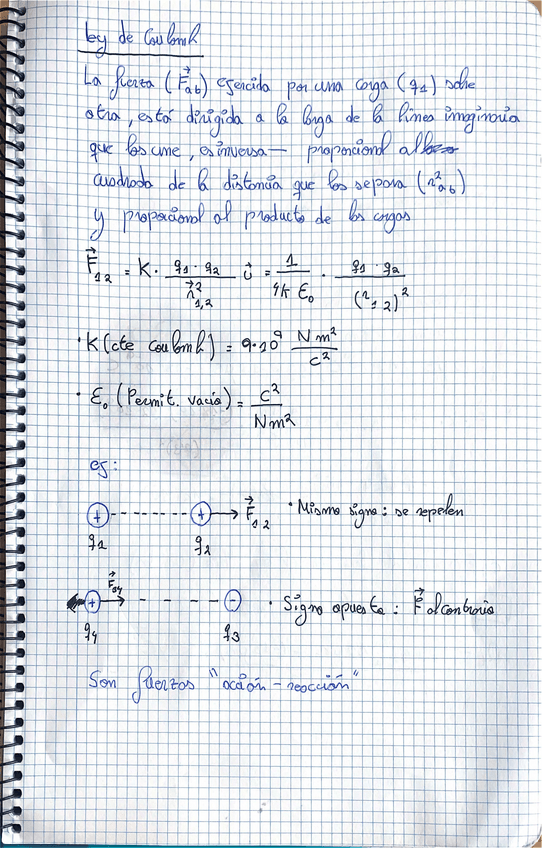 Ley de Coulomb
La fuerza (F⃗ab) ejercida por una carga (q1) sobre
otra, está dirigida a lo largo de la línea imaginaria
que los une, es inversa— proporcional al
cuadrado de la distancia que los separa (r²ab)
y proporcional al producto de las cargas
F⃗12 = K · (q1 · q2)/(r⃗²1,2) u⃗ = 1/(4π ε0) · (q1 · q2)/(r12)²
· K (cte Coulomb) = 9·10⁹ Nm²/C²
· ε0 (Permit. vacío) = C²/Nm²
ej:
+ ------ + → F⃗12 · Mismo signo: se repelen
q1 q2
F⃗34
+ → - - - - - · Signo opuesto: F⃗ al contrario
q4 q3
Son fuerzas "acción - reacción"